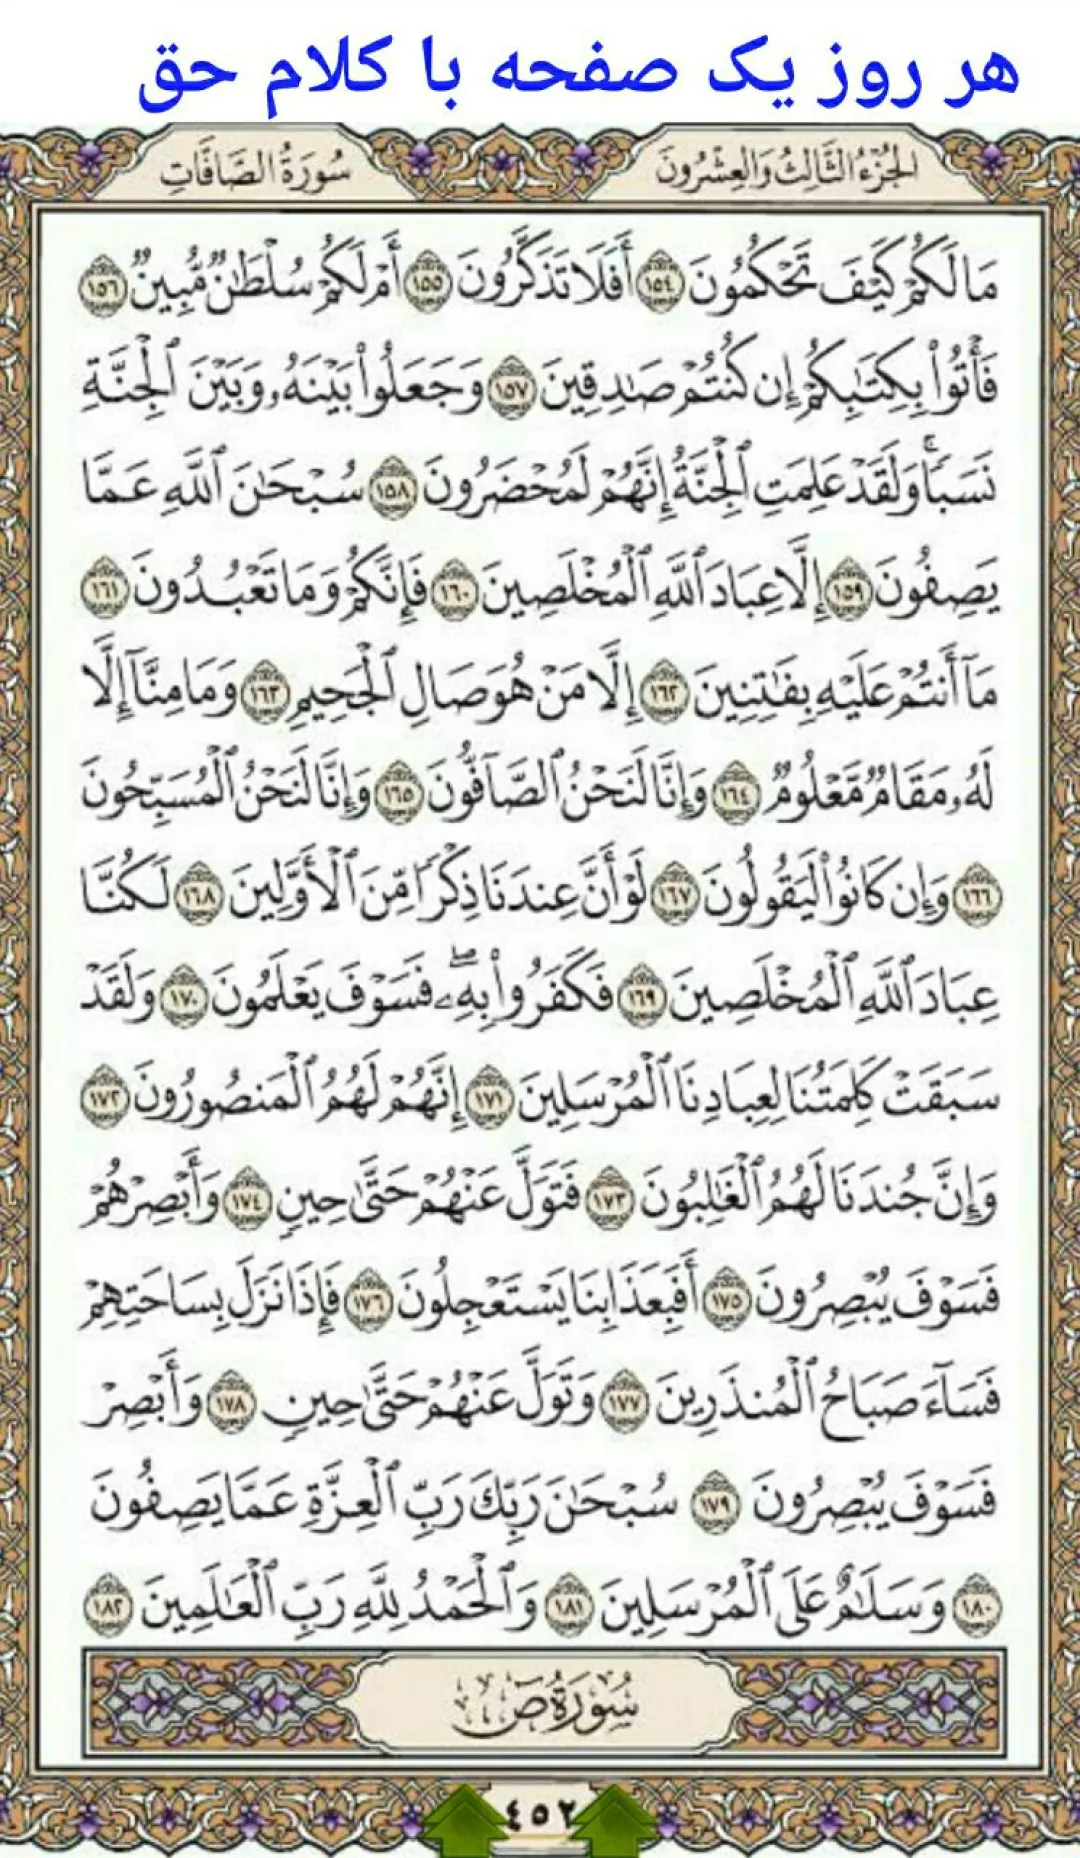 هر روز یک صفحه با کلام حق
الجُزْءُ الثَّالِثُ وَالعِشْرُونَ
سُورَةُ الصَّافَّاتِ
مَا لَكُمْ كَيْفَ تَحْكُمُونَ ١٥٤ أَفَلَا تَذَكَّرُونَ ١٥٥ أَمْ لَكُمْ سُلْطَٰنٌ مُّبِينٌ ١٥٦
فَأْتُوا۟ بِكِتَٰبِكُمْ إِن كُنتُمْ صَٰدِقِينَ ١٥٧ وَجَعَلُوا۟ بَيْنَهُۥ وَبَيْنَ ٱلْجِنَّةِ
نَسَبًا ۚ وَلَقَدْ عَلِمَتِ ٱلْجِنَّةُ إِنَّهُمْ لَمُحْضَرُونَ ١٥٨ سُبْحَٰنَ ٱللَّهِ عَمَّا
يَصِفُونَ ١٥٩ إِلَّا عِبَادَ ٱللَّهِ ٱلْمُخْلَصِينَ ١٦٠ فَإِنَّكُمْ وَمَا تَعْبُدُونَ ١٦١
مَآ أَنتُمْ عَلَيْهِ بِفَٰتِنِينَ ١٦٢ إِلَّا مَنْ هُوَ صَالِ ٱلْجَحِيمِ ١٦٣ وَمَا مِنَّآ إِلَّا
لَهُۥ مَقَامٌ مَّعْلُومٌ ١٦٤ وَإِنَّا لَنَحْنُ ٱلصَّآفُّونَ ١٦٥ وَإِنَّا لَنَحْنُ ٱلْمُسَبِّحُونَ
١٦٦ وَإِن كَانُوا۟ لَيَقُولُونَ ١٦٧ لَوْ أَنَّ عِندَنَا ذِكْرًا مِّنَ ٱلْأَوَّلِينَ ١٦٨ لَكُنَّا
عِبَادَ ٱللَّهِ ٱلْمُخْلَصِينَ ١٦٩ فَكَفَرُوا۟ بِهِۦ ۖ فَسَوْفَ يَعْلَمُونَ ١٧٠ وَلَقَدْ
سَبَقَتْ كَلِمَتُنَا لِعِبَادِنَا ٱلْمُرْسَلِينَ ١٧١ إِنَّهُمْ لَهُمُ ٱلْمَنصُورُونَ ١٧٢
وَإِنَّ جُندَنَا لَهُمُ ٱلْغَٰلِبُونَ ١٧٣ فَتَوَلَّ عَنْهُمْ حَتَّىٰ حِينٍ ١٧٤ وَأَبْصِرْهُمْ
فَسَوْفَ يُبْصِرُونَ ١٧٥ أَفَبِعَذَابِنَا يَسْتَعْجِلُونَ ١٧٦ فَإِذَا نَزَلَ بِسَاحَتِهِمْ
فَسَآءَ صَبَاحُ ٱلْمُنذَرِينَ ١٧٧ وَتَوَلَّ عَنْهُمْ حَتَّىٰ حِينٍ ١٧٨ وَأَبْصِرْ
فَسَوْفَ يُبْصِرُونَ ١٧٩ سُبْحَٰنَ رَبِّكَ رَبِّ ٱلْعِزَّةِ عَمَّا يَصِفُونَ
١٨٠ وَسَلَٰمٌ عَلَى ٱلْمُرْسَلِينَ ١٨١ وَٱلْحَمْدُ لِلَّهِ رَبِّ ٱلْعَٰلَمِينَ ١٨٢
سُورَةُ صٓ
٤٥٢